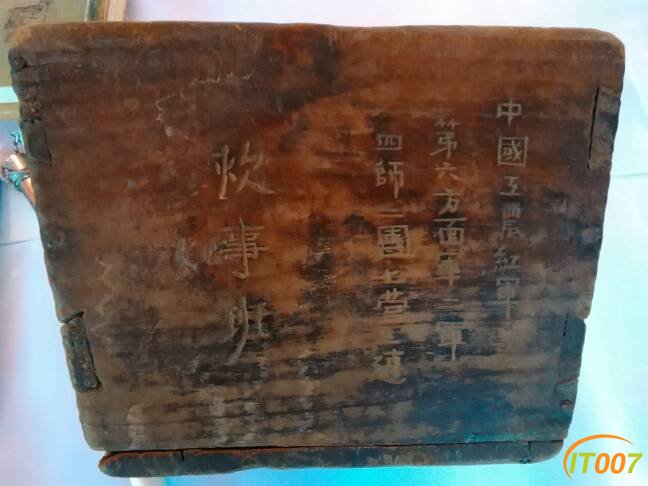 中國工農紅軍
第六方面軍二軍
四師二團七营二連
炊事班
IT007